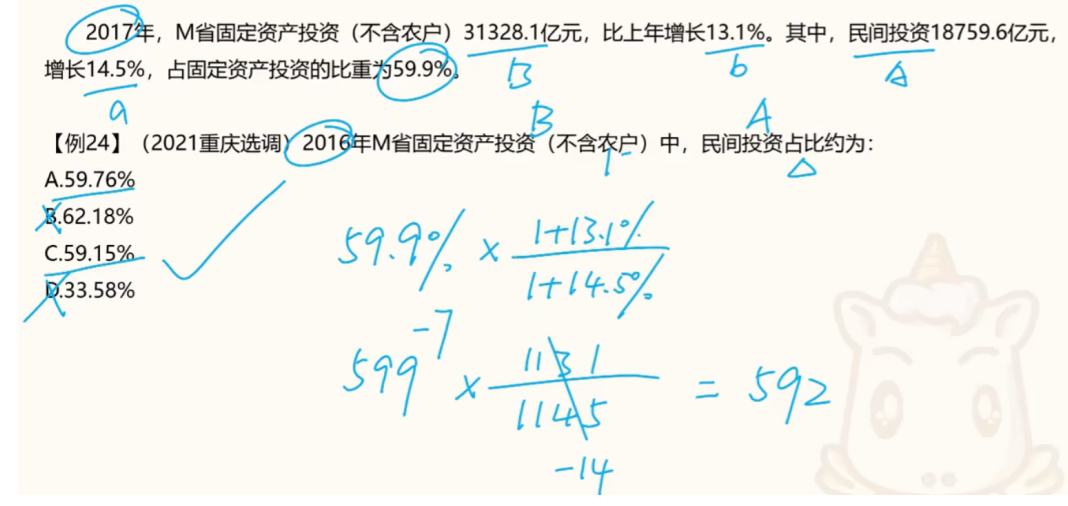 2017年，M省固定资产投资（不含农户）31328.1亿元，比上年增长13.1%。其中，民间投资18759.6亿元，
B b A
增长14.5%，占固定资产投资的比重为59.9%。
a
B A
【例24】（2021重庆选调）2016年M省固定资产投资（不含农户）中，民间投资占比约为：
A.59.76%
B.62.18%
C.59.15%
D.33.58%
59.9% × 1+13.1% / 1+14.5%
-7
599 × 1131 / 1145 = 592
-14